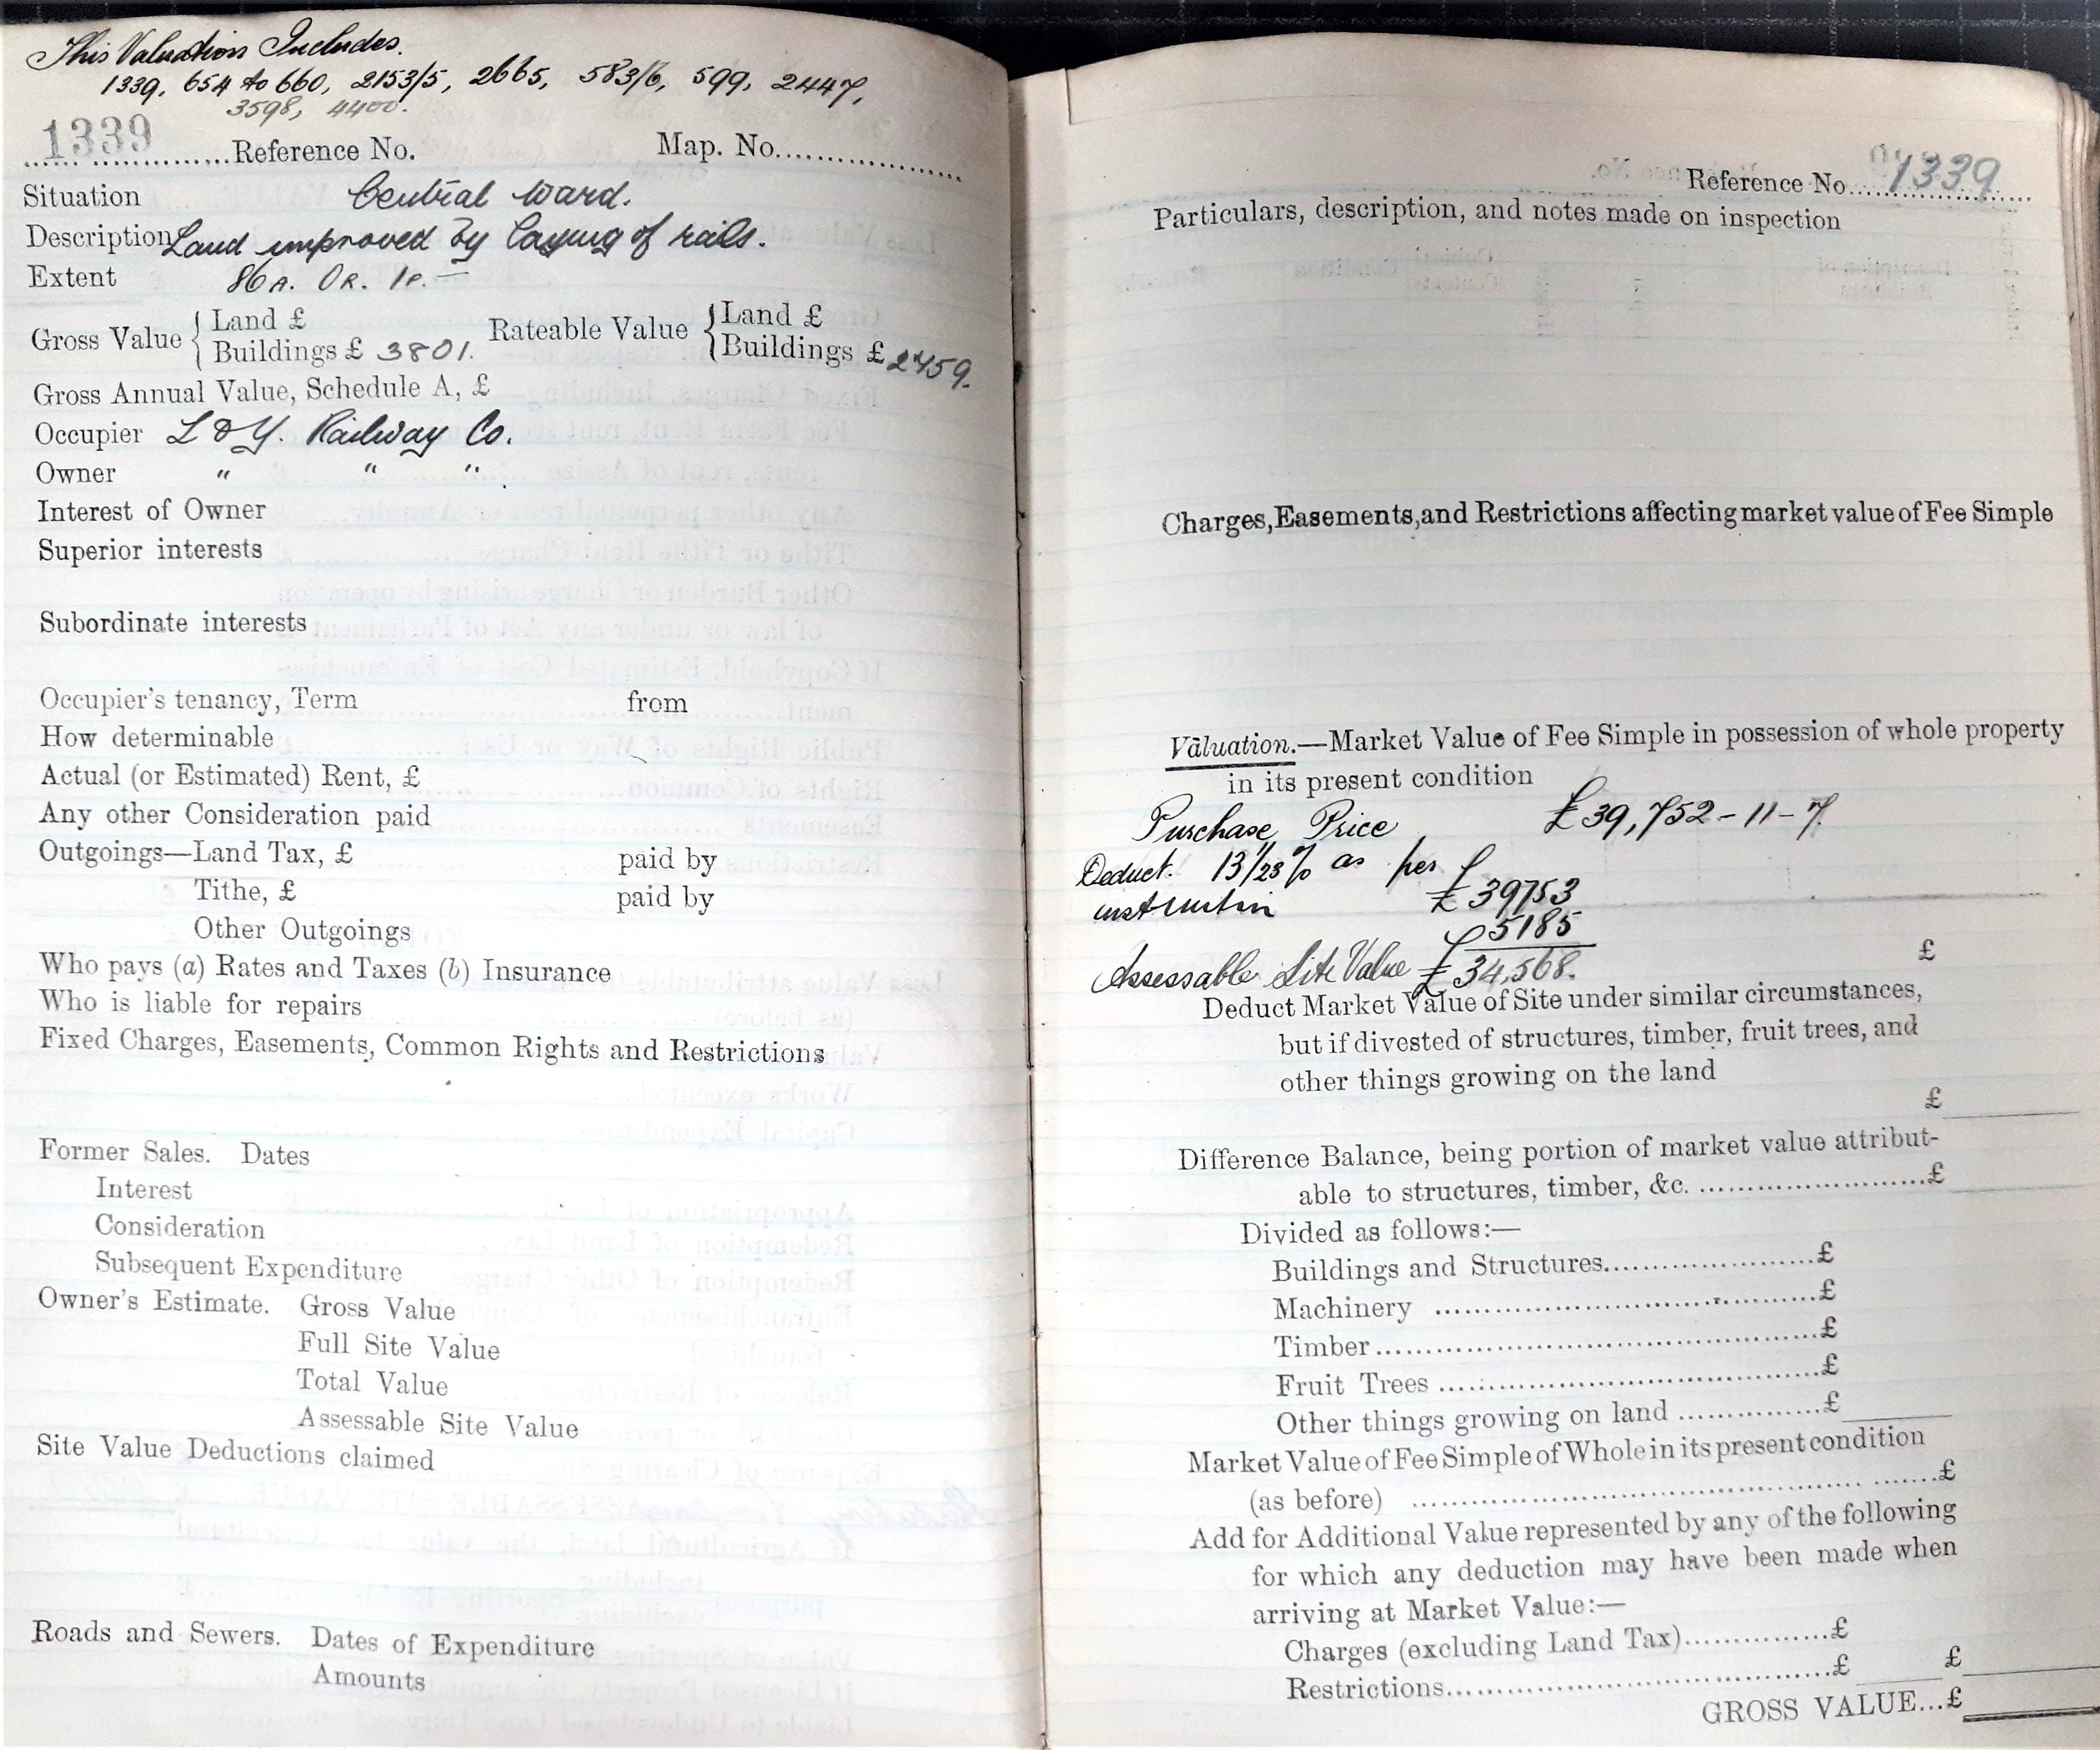 This Valuation Includes.
1339, 654 to 660, 2153/5, 2665, 583/6, 599, 2447,
3598, 4400.
1339 Reference No. Map. No.
Situation Central Ward.
Description Land improved by laying of rails.
Extent 86A. 0R. 1P.—
Gross Value { Land £ Rateable Value { Land £
Buildings £ 3801. Buildings £ 2459.
Gross Annual Value, Schedule A, £
Occupier L & Y. Railway Co.
Owner " " "
Interest of Owner
Superior interests
Subordinate interests
Occupier's tenancy, Term from
How determinable
Actual (or Estimated) Rent, £
Any other Consideration paid
Outgoings—Land Tax, £ paid by
Tithe, £ paid by
Other Outgoings
Who pays (a) Rates and Taxes (b) Insurance
Who is liable for repairs
Fixed Charges, Easements, Common Rights and Restrictions
Former Sales. Dates
Interest
Consideration
Subsequent Expenditure
Owner's Estimate. Gross Value
Full Site Value
Total Value
Assessable Site Value
Site Value Deductions claimed
Roads and Sewers. Dates of Expenditure
Amounts
Reference No. 1339
Particulars, description, and notes made on inspection
Charges, Easements, and Restrictions affecting market value of Fee Simple
Valuation.—Market Value of Fee Simple in possession of whole property
in its present condition
Purchase Price £39,752-11-7.
Deduct. 13 1/23 % as per
instruction £39753
5185
Assessable Site Value £34,568.
£
Deduct Market Value of Site under similar circumstances,
but if divested of structures, timber, fruit trees, and
other things growing on the land
£
Difference Balance, being portion of market value attribut-
able to structures, timber, &c. £
Divided as follows:—
Buildings and Structures £
Machinery £
Timber £
Fruit Trees £
Other things growing on land £
Market Value of Fee Simple of Whole in its present condition
(as before) £
Add for Additional Value represented by any of the following
for which any deduction may have been made when
arriving at Market Value:—
Charges (excluding Land Tax) £
Restrictions £ £
GROSS VALUE...£